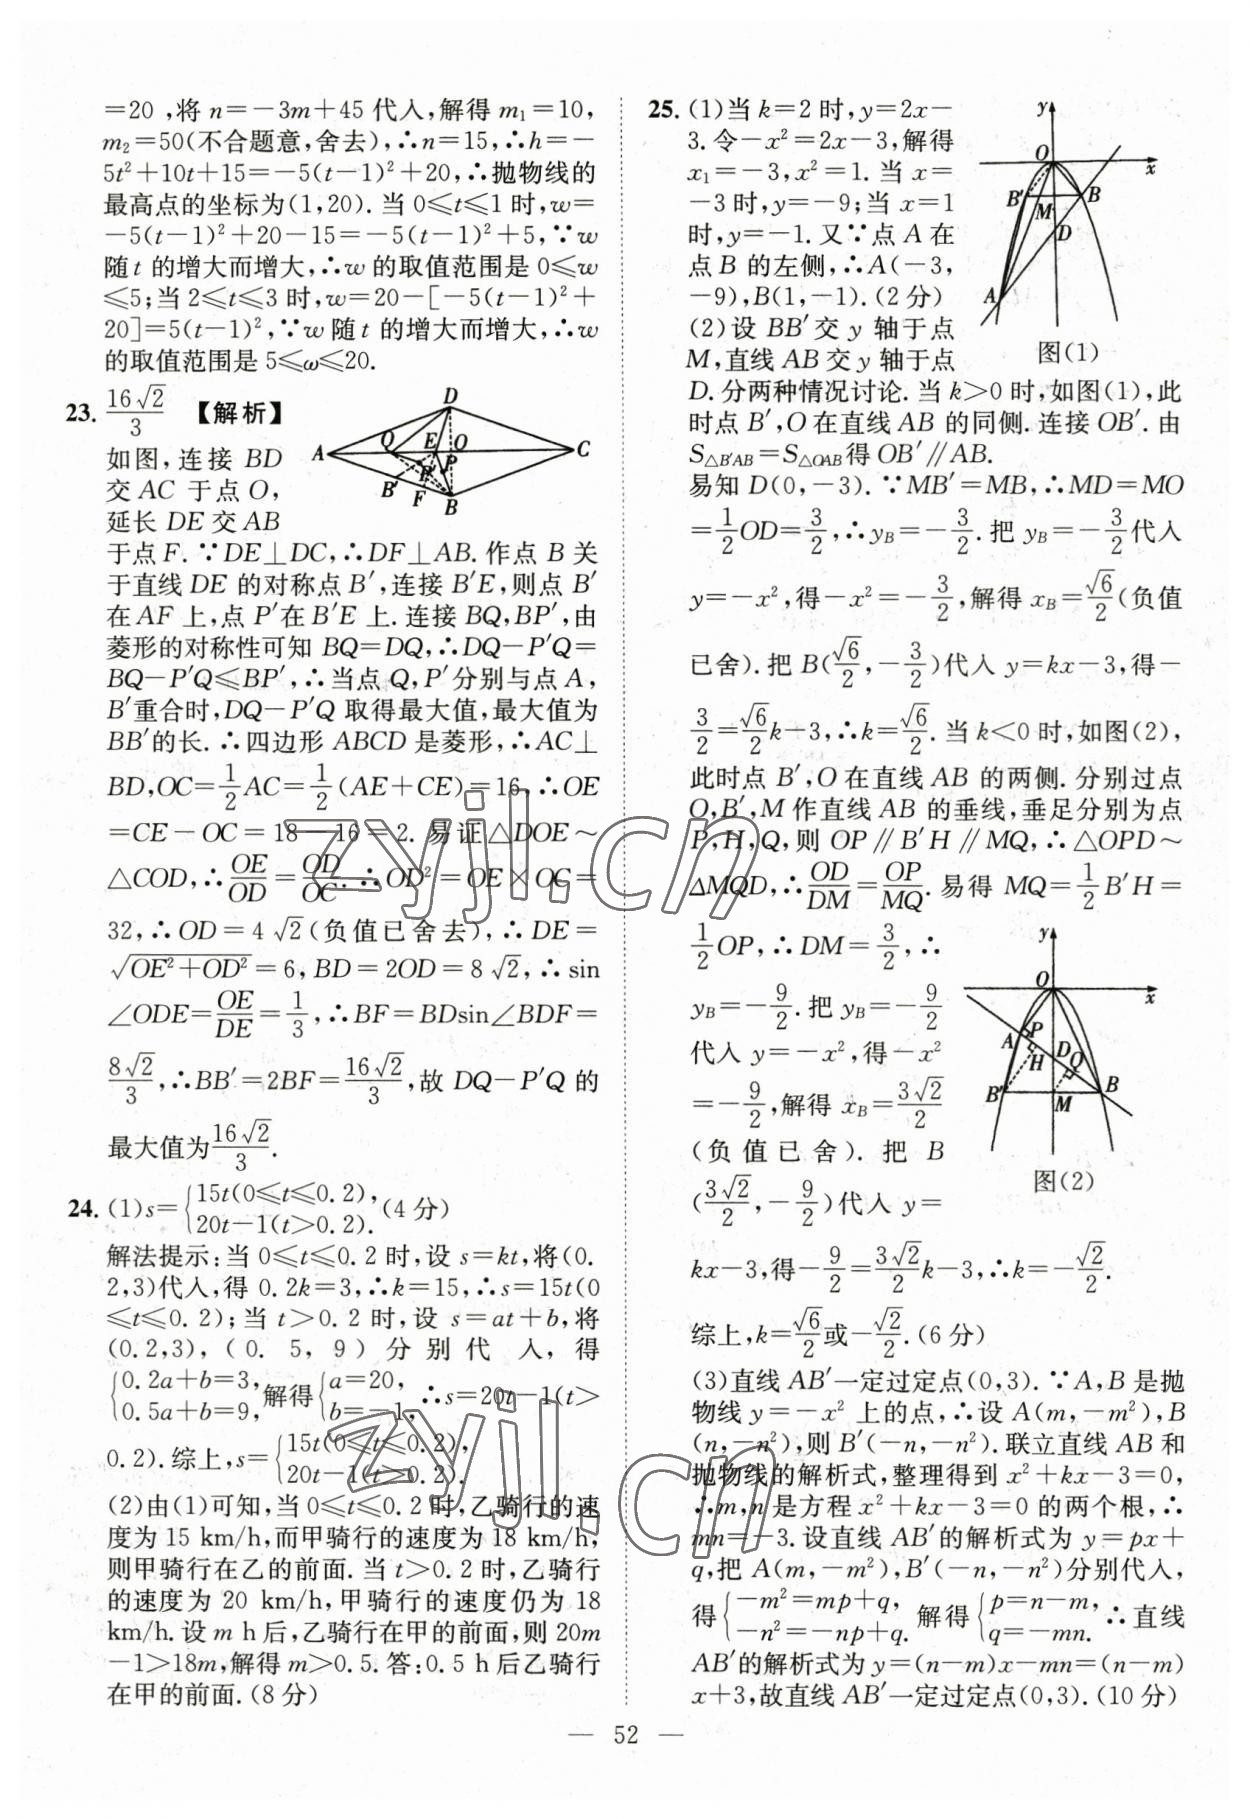 =20,将 n=-3m+45 代入,解得 m₁=10,
m₂=50(不合题意,舍去),∴n=15,∴h=-
5t²+10t+15=-5(t-1)²+20,∴抛物线的
最高点的坐标为(1,20).当 0⩽t⩽1 时,w=
-5(t-1)²+20-15=-5(t-1)²+5,∵w
随 t 的增大而增大,∴w 的取值范围是 0⩽w
⩽5;当 2⩽t⩽3 时,w=20-[-5(t-1)²+
20]=5(t-1)²,∵w 随 t 的增大而增大,∴w
的取值范围是 5⩽ω⩽20.
23. 16√2/3 【解析】
如图,连接 BD
交 AC 于点 O,
延长 DE 交 AB
A Q D E O C P B′ F B
于点 F.∵DE⊥DC,∴DF⊥AB.作点 B 关
于直线 DE 的对称点 B′,连接 B′E,则点 B′
在 AF 上,点 P′在 B′E 上.连接 BQ,BP′,由
菱形的对称性可知 BQ=DQ,∴DQ-P′Q=
BQ-P′Q⩽BP′,∴当点 Q,P′分别与点 A,
B′重合时,DQ-P′Q 取得最大值,最大值为
BB′的长.∴四边形 ABCD 是菱形,∴AC⊥
BD,OC=1/2AC=1/2(AE+CE)=16,∴OE
=CE-OC=18-16=2.易证△DOE∽
△COD,∴OE/OD=OD/OC.∴OD²=OE×OC=
32,∴OD=4√2(负值已舍去),∴DE=
√(OE²+OD²)=6,BD=2OD=8√2,∴sin
∠ODE=OE/DE=1/3,∴BF=BDsin∠BDF=
8√2/3,∴BB′=2BF=16√2/3,故 DQ-P′Q 的
最大值为16√2/3.
24. (1)s={15t(0⩽t⩽0.2),
20t-1(t>0.2).(4分)
解法提示:当 0⩽t⩽0.2 时,设 s=kt,将(0.
2,3)代入,得 0.2k=3,∴k=15,∴s=15t(0
⩽t⩽0.2);当 t>0.2 时,设 s=at+b,将
(0.2,3),(0.5,9)分别代入,得
{0.2a+b=3, 0.5a+b=9,解得{a=20, b=-1,∴s=20t-1(t>
0.2).综上,s={15t(0⩽t⩽0.2),
20t-1(t>0.2).
(2)由(1)可知,当 0⩽t⩽0.2 时,乙骑行的速
度为 15 km/h,而甲骑行的速度为 18 km/h,
则甲骑行在乙的前面.当 t>0.2 时,乙骑行
的速度为 20 km/h,甲骑行的速度仍为 18
km/h.设 m h 后,乙骑行在甲的前面,则 20m
-1>18m,解得 m>0.5.答:0.5 h 后乙骑行
在甲的前面.(8分)
25. (1)当 k=2 时,y=2x-
3.令-x²=2x-3,解得
x₁=-3,x²=1.当 x=
-3时,y=-9;当 x=1
时,y=-1.又∵点 A 在
点 B 的左侧,∴A(-3,
-9),B(1,-1).(2分)
y O x B′ M B D A
图(1)
(2)设 BB′交 y 轴于点
M,直线 AB 交 y 轴于点
D.分两种情况讨论.当 k>0 时,如图(1),此
时点 B′,O 在直线 AB 的同侧.连接 OB′.由
S△B′AB=S△OAB得 OB′∥AB.
易知 D(0,-3).∵MB′=MB,∴MD=MO
=1/2OD=3/2,∴y_B=-3/2.把 y_B=-3/2代入
y=-x²,得-x²=-3/2,解得 x_B=√6/2(负值
已舍).把 B(√6/2,-3/2)代入 y=kx-3,得-
3/2=√6/2k-3,∴k=√6/2.当 k<0 时,如图(2),
此时点 B′,O 在直线 AB 的两侧.分别过点
O,B′,M 作直线 AB 的垂线,垂足分别为点
P,H,Q,则 OP∥B′H∥MQ,∴△OPD∽
△MQD,∴OD/DM=OP/MQ.易得 MQ=1/2B′H=
1/2OP,∴DM=3/2,∴
y_B=-9/2.把 y_B=-9/2
代入 y=-x²,得-x²
=-9/2,解得 x_B=3√2/2
(负值已舍).把 B
(3√2/2,-9/2)代入 y=
y O x A P D H Q B′ M B
图(2)
kx-3,得-9/2=3√2/2k-3,∴k=-√2/2.
综上,k=√6/2或-√2/2.(6分)
(3)直线 AB′一定过定点(0,3).∵A,B 是抛
物线 y=-x² 上的点,∴设 A(m,-m²),B
(n,-n²),则 B′(-n,-n²).联立直线 AB 和
抛物线的解析式,整理得到 x²+kx-3=0,
∴m,n 是方程 x²+kx-3=0 的两个根,∴
mn=-3.设直线 AB′的解析式为 y=px+
q,把 A(m,-m²),B′(-n,-n²)分别代入,
得{-m²=mp+q, -n²=-np+q. 解得{p=n-m, q=-mn. ∴直线
AB′的解析式为 y=(n-m)x-mn=(n-m)
x+3,故直线 AB′一定过定点(0,3).(10分)
— 52 —
zyjl.cn
zyjl.cn